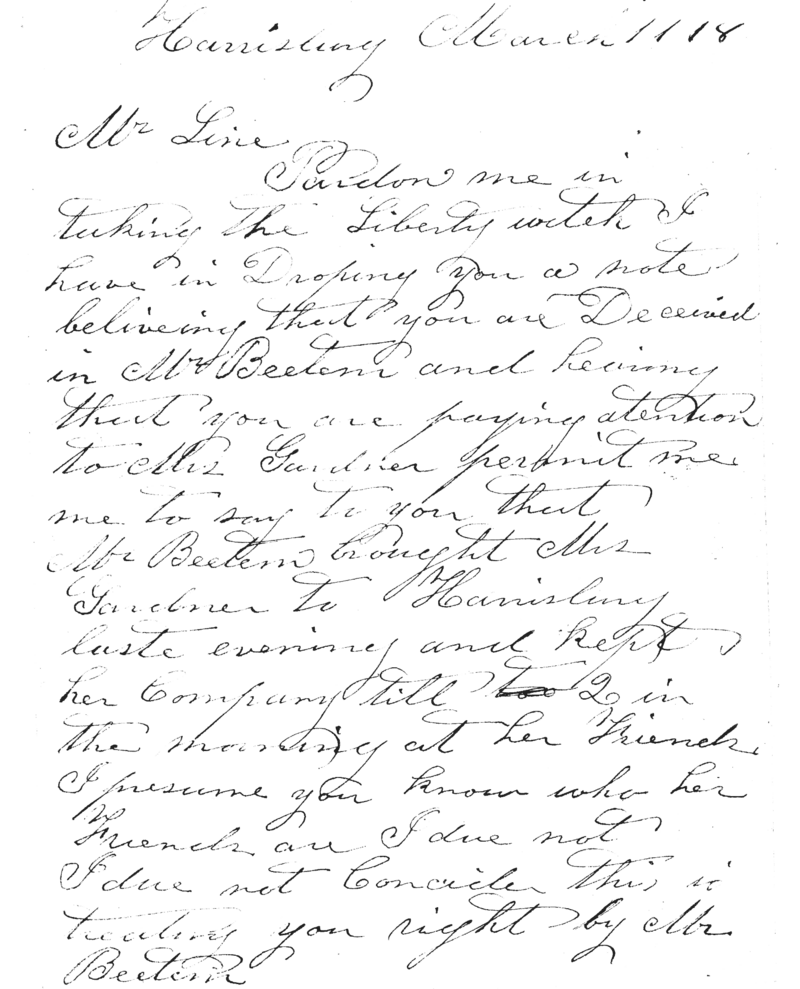 Harrisburg March 11 18
Mr Line
Pardon me in
taking the Liberty witch I
have in Droping you a note
beliveing that you are Deceived
in Mr Beetem and hearing
that you are paying atention
to Mrs Gardner permit me
me to say to you that
Mr Beetem brought Mrs
Gardner to Harrisburg
laste evening and kept
her Company till to 2 in
the morning at her Friends
I presume you know who her
Friends are I due not
I due not Concider this is
treating you right by Mr
Beetem